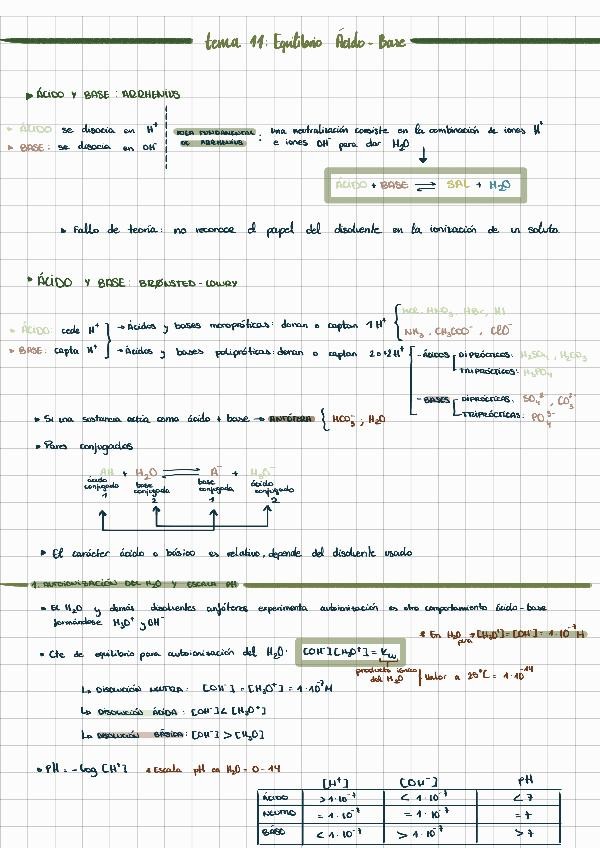 tema 11: Equilibrio Ácido - Base
▸ ÁCIDO Y BASE: ARRHENIUS
▸ ÁCIDO se disocia en H⁺
▸ BASE: se disocia en OH⁻
IDEA FUNDAMENTAL DE ARRHENIUS: una neutralización consiste en la combinación de iones H⁺
e iones OH⁻ para dar H₂O
ÁCIDO + BASE ⇌ SAL + H₂O
▸ Fallo de teoría: no reconoce el papel del disolvente en la ionización de un soluto
▸ ÁCIDO Y BASE: BRØNSTED-LOWRY
▸ ÁCIDO: cede H⁺
▸ BASE: capta H⁺
→ Ácidos y bases monopróticas: donan o captan 1H⁺ { HCl, HNO₃, HBr, HI
NH₃, CH₃COO⁻, ClO⁻
→ Ácidos y bases polipróticas: donan o captan 2 o +2H⁺
- ÁCIDOS DIPRÓTICOS: H₂SO₄, H₂CO₃
TRIPRÓTICOS: H₃PO₄
- BASES DIPRÓTICAS: SO₄²⁻, CO₃²⁻
TRIPRÓTICAS: PO₄³⁻
▸ Si una sustancia actúa como ácido + base → ANFÓTERA { HCO₃⁻; H₂O
▸ Pares conjugados
AH + H₂O ⇌ A⁻ + H₃O⁺
ácido conjugado 1 base conjugada 2 base conjugada 1 ácido conjugado 2
▸ El carácter ácido o básico es relativo, depende del disolvente usado
1. AUTOIONIZACIÓN DEL H₂O Y ESCALA PH
▸ El H₂O y demás disolventes anfóteros experimenta autoionización es otro comportamiento ácido-base
formándose H₃O⁺ y OH⁻
* En H₂O pura → [H₃O⁺] = [OH⁻] = 1·10⁻⁷ M
▸ Cte de equilibrio para autoionización del H₂O: [OH⁻][H₃O⁺] = Kw
producto iónico del H₂O | Valor a 25°C = 1·10⁻¹⁴
↳ DISOLUCIÓN NEUTRA: [OH⁻] = [H₃O⁺] = 1·10⁻⁷ M
↳ DISOLUCIÓN ÁCIDA: [OH⁻] < [H₃O⁺]
↳ DISOLUCIÓN BÁSICA: [OH⁻] > [H₃O]
▸ PH = -log [H⁺] * Escala pH en H₂O = 0-14
[H⁺] [OH⁻] PH
ÁCIDO > 1·10⁻⁷ < 1·10⁻⁷ < 7
NEUTRO = 1·10⁻⁷ = 1·10⁻⁷ = 7
BÁSO < 1·10⁻⁷ > 1·10⁻⁷ > 7